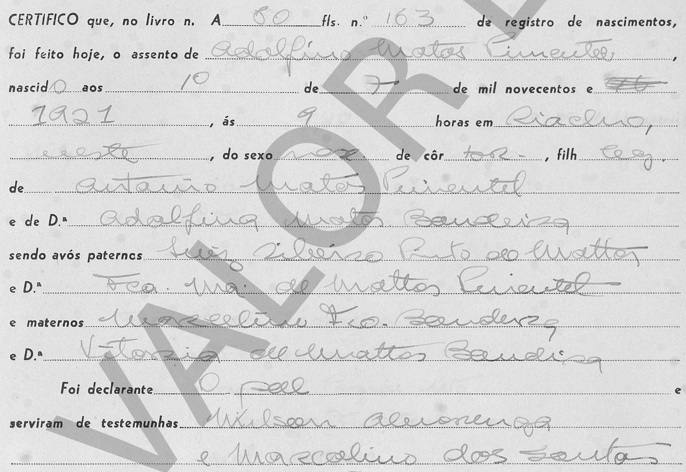 CERTIFICO que, no livro n. A 80 fls. n.º 163 de registro de nascimentos,
foi feito hoje, o assento de Adolfino Matos Pimentel,
nascido aos 10 de 7 de mil novecentos e
1921, ás 9 horas em Riacho,
neste, do sexo mas de côr , filh leg.
de Antonio Matos Pimentel
e de D.ª Adolfina Matos Bandeira
sendo avós paternos Luiz Silverio Pinto de Mattos
e D.ª Fca. Ma. de Mattos Pimentel
e maternos Marcelino Fco. Bandeira
e D.ª Vitorzia de Mattos Bandeira
Foi declarante O pae e
serviram de testemunhas Wilson Alvorenga
e Marcolino dos Santos
VALOR